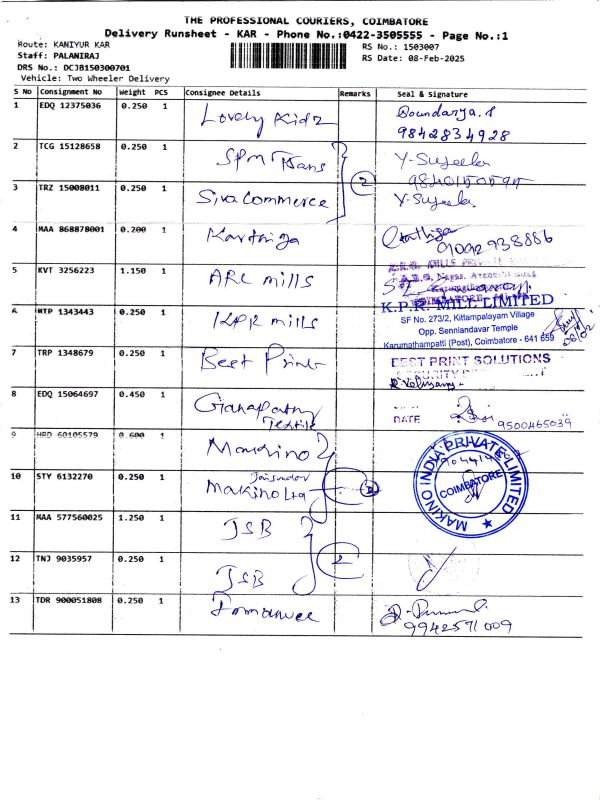 THE PROFESSIONAL COURIERS, COIMBATORE
Delivery Runsheet - KAR - Phone No.:0422-3505555 - Page No.:1
Route: KANIYUR KAR
RS No.: 1503007
Staff: PALANIRAJ
RS Date: 08-Feb-2025
DRS No.: DCJB150300701
Vehicle: Two Wheeler Delivery
S No Consignment No Weight PCS Consignee Details Remarks Seal & Signature
1 EDQ 12375036 0.250 1 Lovely Kidz
9842834928
2 TCG 15128658 0.250 1 SPM Trans Y-Sujeela
2
3 TRZ 15008011 0.250 1 Siva Commerce Y-Sujeela.
4 MAA 868878001 0.200 1 Karthiga
5 KVT 3256223 1.150 1 ARC mills
K.P.R. MILL LIMITED
6 MTP 1343443 0.250 1 KPR mills
SF No. 273/2, Kittampalayam Village
Opp. Senniandavar Temple
Karumathampatti (Post), Coimbatore - 641 659
7 TRP 1348679 0.250 1 Best Print
BEST PRINT SOLUTIONS
8 EDQ 15064697 0.450 1 Ganapathy Textile
DATE
9500465039
9 HRD 60105579 0.600 1 Makino
MAKINO INDIA PRIVATE LIMITED
COIMBATORE
10 STY 6132270 0.250 1 Makino Ltd
11 MAA 577560025 1.250 1 JSB
2
12 TNJ 9035957 0.250 1 JSB
13 TDR 900051808 0.250 1
9942571009